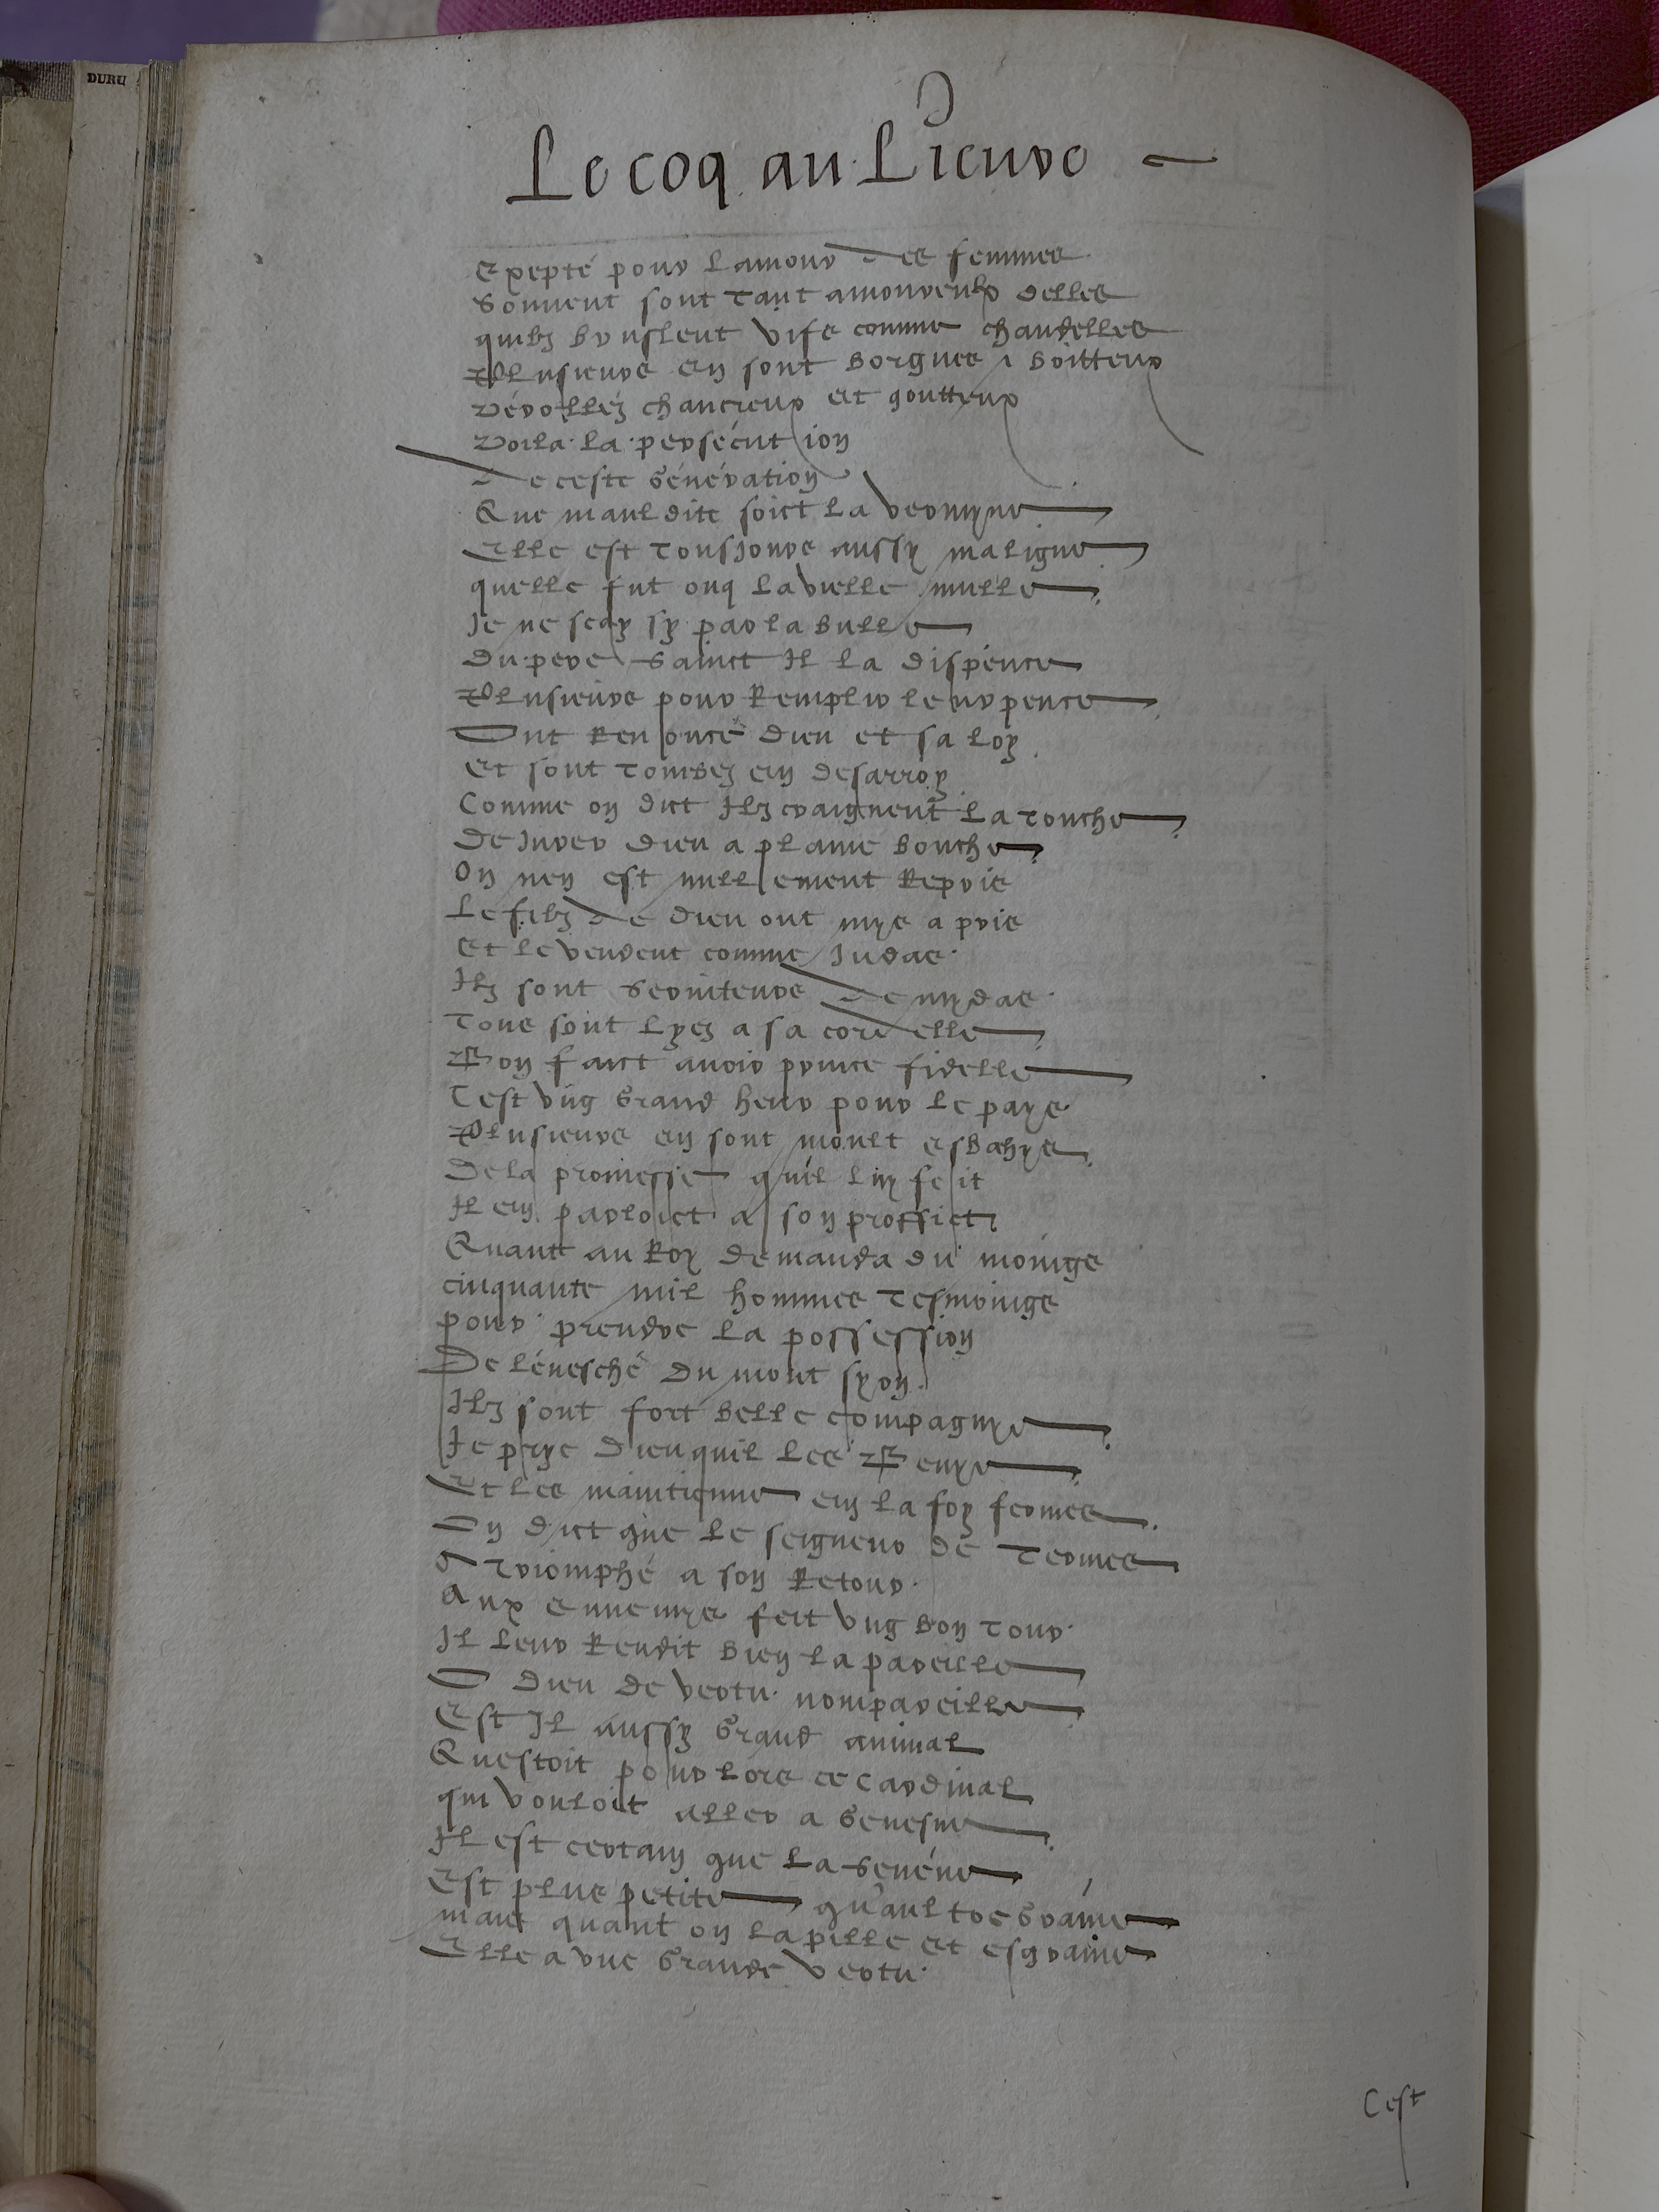 DURU
Le coq au Lieure
Exepté pour lamour des femmes
Souuent sont tant amoureulx delles
quilz bruslent vifs comme chandelles
Plusieurs en sont borgnes & boitteux
Vérollez chancreux et goutteux
Voila la persécution
De ceste génération
Que mauldite soict la vermyne
Elle est tousjours aussy maligne
quelle fut onq la vielle mulle
Je ne scay sy par la bulle
Du pere sainct Il la dispence
Plusieurs pour Remplir leur pence
Ont Renoncé dieu et sa loy
Et sont tombez en desarroy
Comme on dict Ilz craignent la touche
De Jurer dieu a plaine bouche
On nen est nullement Repris
Le filz de dieu ont mys a pris
Et le vendent comme Judas
Ilz sont seruiteurs de mydas
Tous sont lyez a sa cordelle
Bon faict auoir prince fidelle
Cest vng grand heur pour le pays
Plusieurs en sont moult esbahys
De la promesse qu'il luy feit
Il en parloict a son proffict
Quant au Roy demanda du moings
cinquante mil hommes tesmoings
pour prendre la possession
De léuesché du mont syon
Ilz sont fort belle compagnye
Je prye dieu quil les Benye
Et les maintienne en la foy fermes
On dict que le seigneur de Termes
A triomphé a son Retour
Aux ennemys feit vng bon tour
Il leur Rendit bien la pareille
O dieu de vertu nompareille
Est Il aussy grand animal
Questoit pour lors ce cardinal
qui vouloit aller a genesue
Il est certain que la seneue
Est plus petite qu'aultre graine
mais quant on la pille et esgraine
Elle a vne grande vertu
Cest